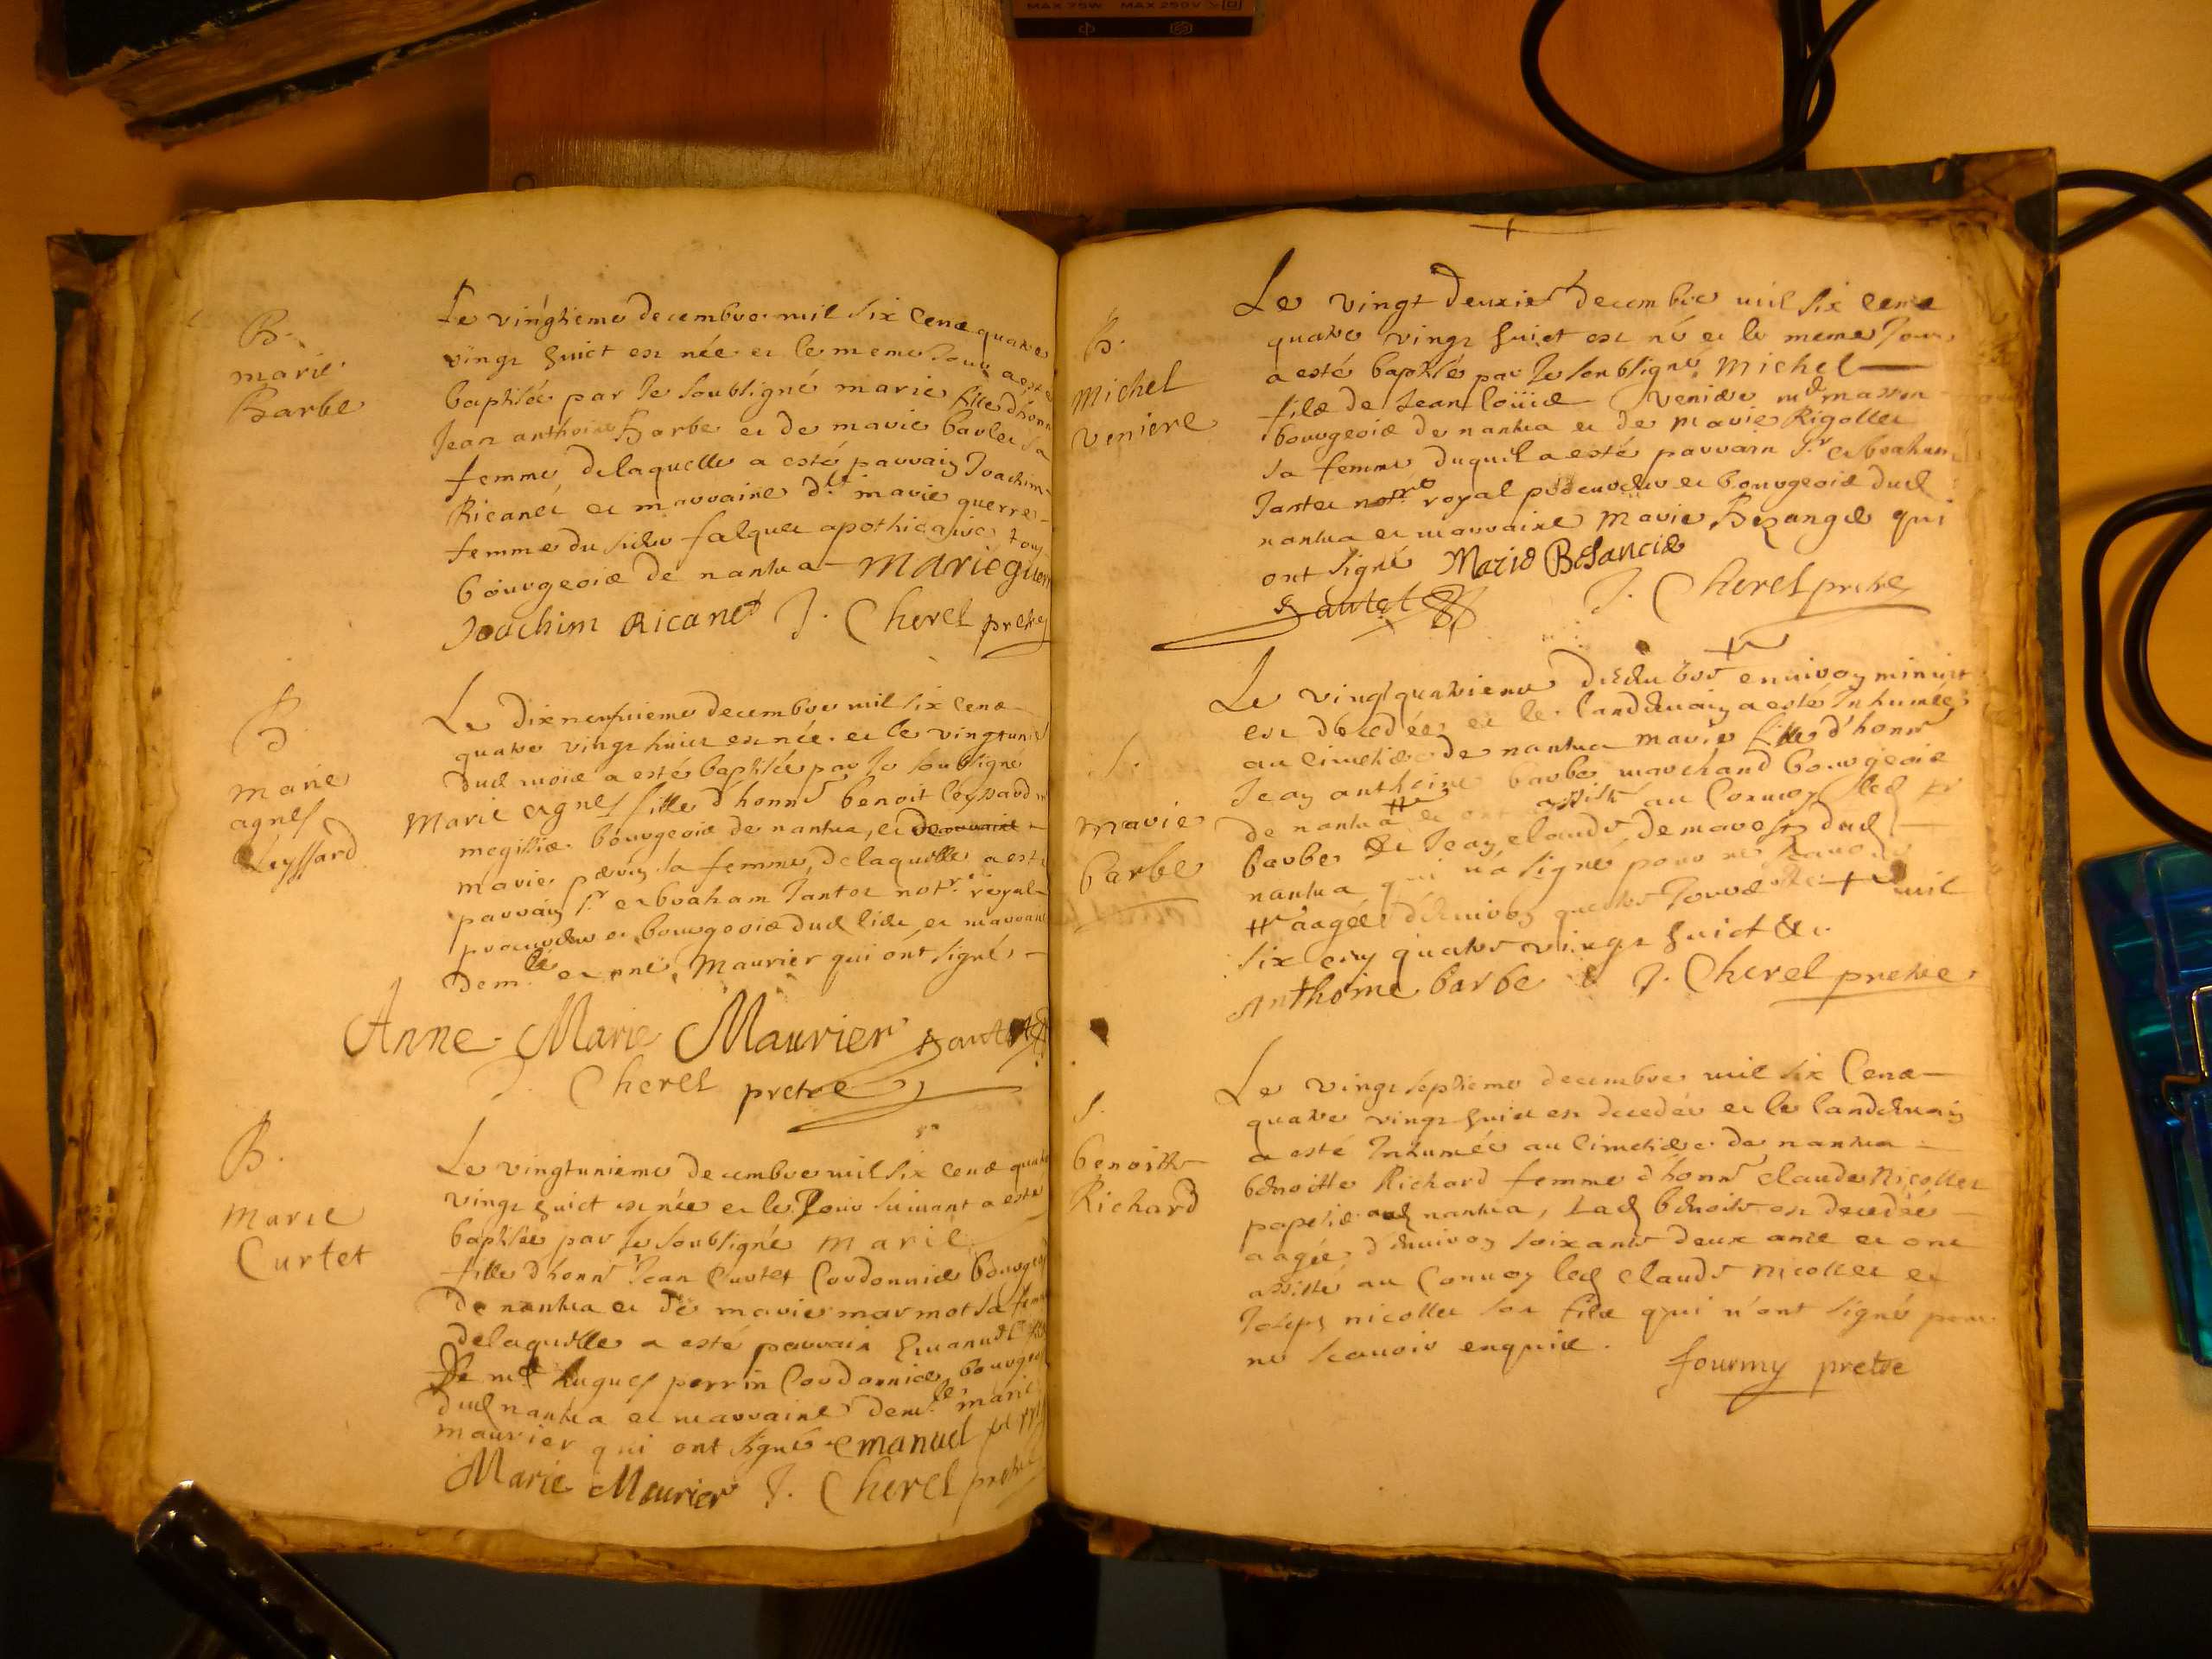 MAX 75W MAX 250V
B.
marie
Barbe
Le vingtieme decembre mil six cens quatre
vingt huict est née et le meme Jour a esté
baptisée par Je soubsigné marie fille d'honn
Jean anthoine Barbe et de marie
femme, de laquelle a esté parrain Joachim
Ricanet et marraine marie guerre
femme du falquet apothicaire tous
bourgeois de nantua marie guerr
Joachim Ricanet J. Cherel pretre
B.
marie
agnes
Leyssard
Le dixneufvieme decembre mil six cens
quatre vingt huict est née et le vingtun
dud mois a esté baptisée par Je soubsigné
Marie agnes fille d'honn benoit leyssard
megissier bourgeois de nantua, et
marie sa femme, de laquelle a esté
parrain Sr abraham Jantet notre royal
procureur et bourgeois dud lieu et marraine
demlle anne Maurier qui ont signé
Anne Marie Maurier Jantet
J. Cherel pretre
B.
Marie
Curtet
Le vingtunieme decembre mil six cens quatre
vingt huict est née et le Jour suivant a esté
baptisée par Je soubsigné marie
fille d'honn Jean Curtet Cordonnier bourgeois
de nantua et de marie marmot sa femme
de laquelle a esté parrain Emanuel
De me hugues perrin Cordonnier bourgeois
dud nantua et marraine demlle marie
maurier qui ont signé emanuel perrin
Marie Maurier J. Cherel pretre
B.
Michel
Veniere
Le vingt deuxie decembre mil six cens
quatre vingt huict est né et le meme Jour
a esté baptisé par Je soubsigné Michel
fils de Jean Louis Veniere md masson
bourgeois de nantua et de marie Rigollet
sa femme duquel a esté parrain Sr abraham
Jantet notre royal procureur et bourgeois dud
nantua et marraine Marie Bezange qui
ont signé Marie Besancie
Jantet J. Cherel pretre
S.
Marie
Barbe
Le vingtquatrieme decembre environ minuit
est décédée et le landemain a esté Inhumée
au cimetiere de nantua marie fille d'honn
Jean anthoine barbe marchand bourgeois
de nantua et ont assisté au Convoy led Sr
barbe et Jean claude demarest dud
nantua qui n'a signé pour ne scavoir
aagée d'environ quatre Jours mil
six cens quatre vingt huict &c.
Anthoine barbe J. Cherel pretre
S.
benoitte
Richard
Le vingt septieme decembre mil six Cens
quatre vingt huict est decedée et le landemain
a esté Inhumée au cimetiere de nantua
benoitte Richard femme d'honn claude Nicollet
papetier aud nantua, Lad benoite est decedée
aagée d'environ soixante deux ans et ont
assisté au Convoy led claude nicollet et
Joseph nicollet son fils qui n'ont signé pour
ne scavoir enquis.
fourmy pretre